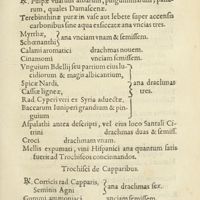 ℞. Passulæ uuarum albarum, pinguissimarum, passa-
rum, quales Damascenæ.
Terebinthinæ puræ in vase aut lebete super accensis
carbonibus sine aqua exsiccatæ ana vncias tres.
Myrrhæ,
Schœnanthi, } ana vnciam vnam & semissem.
Calami aromatici drachmas nouem.
Cinamomi vnciam semissem.
Vnguium Bdellij seu partium eius lu-
cidiorum & magis albicantium,
Spicæ Nardi,
Cassiæ ligneæ,
Rad. Cyperi veri ex Syria aduectæ,
Baccarum Iuniperi grandium & pin-
guium
} ana drachmas tres.
Aspalathi antea descripti, vel eius loco Santali Ci-
trini drachmas duas & semiss.
Croci drachmam vnam.
Mellis expumati, vini Hispanici ana quantum satis
fuerit ad Trochiscos concinnandos.
Trochisci de Capparibus.
℞. Corticis rad. Capparis,
Seminis Agni } ana drachmas sex.
Gummi ammoniaci vnciam semissem.